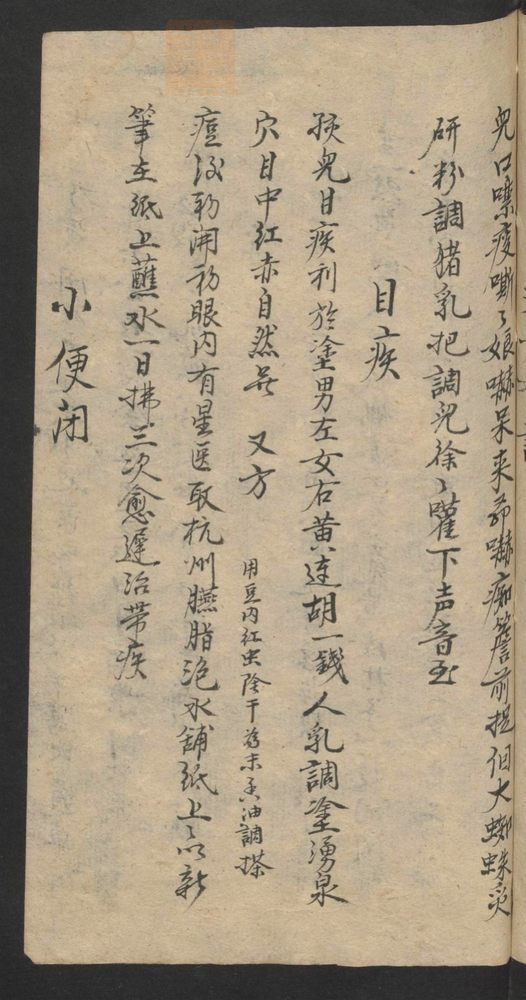 兒口噤痰嘶〻娘嚇呆来茆嚇痴簷前提個大蜘蛛炙
研粉調猪乳把調兒徐〻嚾下声音玉
目疾
孩兒目疾利於塗男左女右黄連胡一錢人乳調塗湧泉
穴目中红赤自然無 又方 用豆内红虫陰干為末香油調搽
痘後初開初眼内有星医取杭州臙脂泡水舖紙上以新
筆在紙上蘸水一日拂三次愈遲治带疾
小便闭